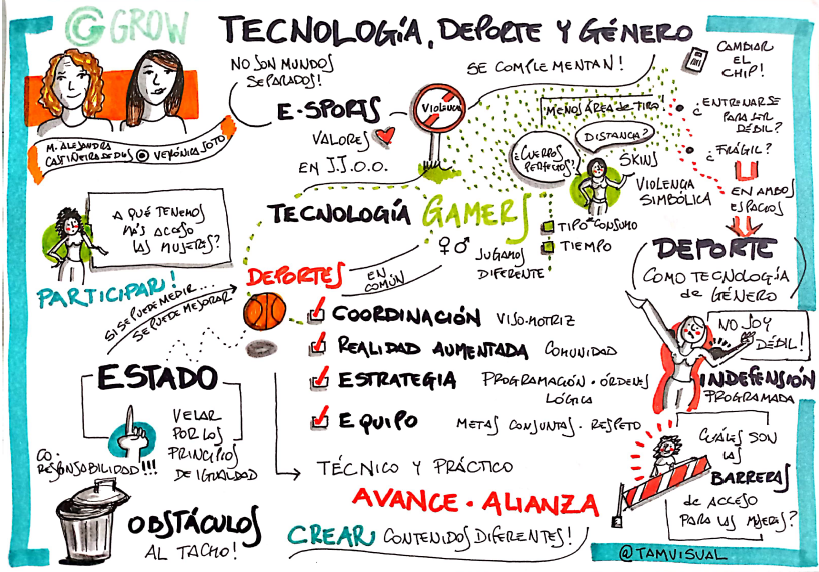 GROW
TECNOLOGÍA, DEPORTE Y GÉNERO
NO SON MUNDOS
SEPARADOS!
SE COMPLEMENTAN!
CAMBIAR
EL
CHIP!
M. ALEJANDRA
CASTIÑEIRA DE DIOS
VERÓNICA SOTO
E-SPORTS
VALORES
EN J.J.O.O.
VIOLENCIA
"MENOS ÁREA de TIRO"
DISTANCIA?
¿CUERPOS
PERFECTOS?
SKINS
VIOLENCIA
SIMBÓLICA
¿ENTRENARSE
PARA SER
DÉBIL?
¿FRÁGIL?
EN AMBOS
ESPACIOS
A QUÉ TENEMOS
MÁS ACCESO
LAS MUJERES?
PARTICIPAR!
TECNOLOGÍA GAMERS
TIPO CONSUMO
TIEMPO
♀♂ JUGAMOS
DIFERENTE
DEPORTES
EN
COMÚN
DEPORTE
COMO TECNOLOGÍA
de GÉNERO
SI SE PUEDE MEDIR...
SE PUEDE MEJORAR
COORDINACIÓN VISO-MOTRIZ
REALIDAD AUMENTADA COMUNIDAD
ESTRATEGIA PROGRAMACIÓN · ÓRDENES
LÓGICA
EQUIPO METAS CONJUNTAS · RESPETO
TÉCNICO Y PRÁCTICO
NO SOY
DÉBIL!
INDEFENSIÓN
PROGRAMADA
ESTADO
VELAR
POR LOS
PRINCIPIOS
DE IGUALDAD
CO-
RESPONSABILIDAD!!!
OBSTÁCULOS
AL TACHO!
AVANCE · ALIANZA
CREAR CONTENIDOS DIFERENTES!
CUÁLES SON
LAS
BARRERAS
de ACCESO
PARA LAS MUJERES?
@TAMVISUAL